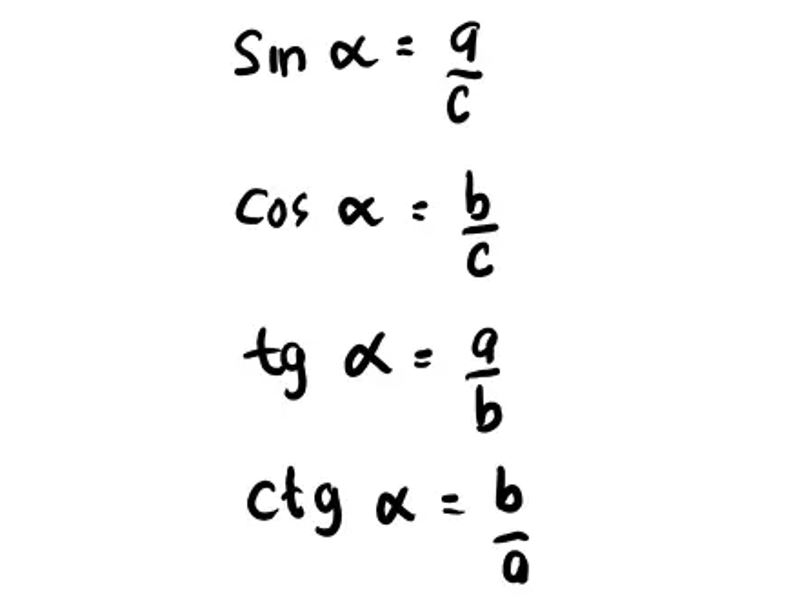 sin α = a/c
cos α = b/c
tg α = a/b
ctg α = b/a